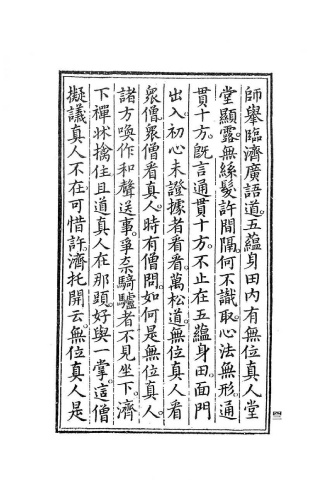 師舉臨濟廣語道。五蘊身田內有無位真人。堂
堂顯露。無絲髮許間隔。何不識取。心法無形。通
貫十方。既言通貫十方。不止在五蘊身田面門
出入。初心未證據者看看。萬松道。無位真人看
衆僧。衆僧看真人。時有僧問。如何是無位真人。
諸方喚作和聲送事。爭柰騎驢者不見坐下。濟
下禪牀擒住。且道真人在那頭。好與一掌。這僧
擬議。真人不在。可惜許。濟托開云。無位真人是